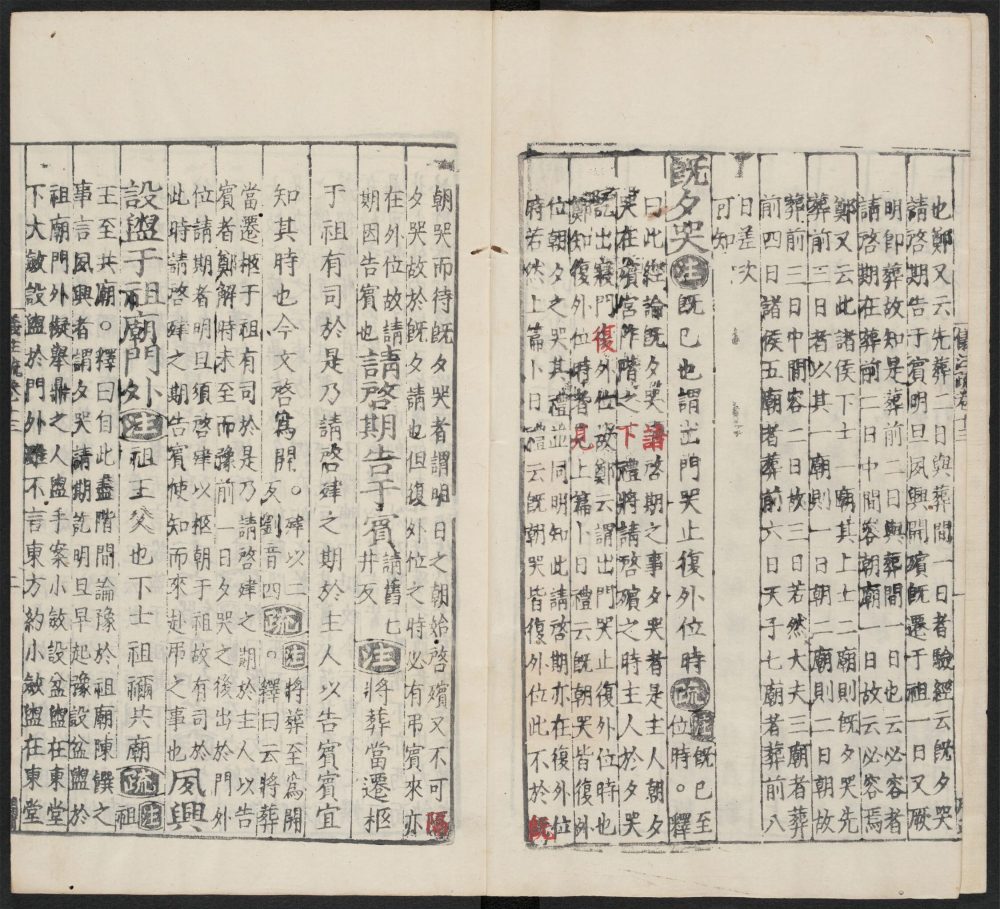 也鄭又云先葬二日與葬間一日者驗經云既夕哭
請啓期告于賓明旦夙興開殯既遷于祖一日又厥
明卽葬故知是葬前二日與葬間一日也云必容者
請啓期在葬前二日中間容朝廟一日故云必容焉
鄭又云此諸侯下士一廟其上士二廟則既夕哭先
葬前三日者以其一廟則一日朝二廟則二日朝故
葬前三日中間容二日故三日若然大夫三廟者葬
前四日諸侯五廟者葬前六日天子七廟者葬前八
日差次
可知
既夕哭注既已也謂出門哭止復外位時疏注既已至
位時。釋
曰此經論既夕哭請啓期之事夕哭者是主人朝夕
哭在殯宮阼階之下禮將請啓殯之時主人於夕哭
訖出寢門復外位故鄭云謂出門哭止復外位時也
鄭知復外位時者見上篇卜日禮云既朝哭皆復外
位朝夕之哭其禮並同明知此請啓期亦在復外位
時若然上篇卜日禮云既朝哭皆復外位此不於既
朝哭而待既夕哭者謂明日之朝始啓殯又不可隔
夕哭故於既夕請也但復外位之時必有弔賓來亦
在外位故請啓期告于賓請舊七
期因告賓也井反注將葬當遷柩
于祖有司於是乃請啓肂之期於主人以告賓賓宜
知其時也今文啓爲開。肂以二反劉音四疏注將葬至爲開。釋曰云將葬
當遷柩于祖有司於是乃請啓肂之期於主人以告
賓者鄭解時未至而豫前一日夕哭之後出於門外
位請期者明旦須啓肂以柩朝于祖故有司於
此時請啓肂之期告賓使知而來赴弔之事也夙興
設盥于祖廟門外注祖王父也下士祖禰共廟疏注祖
王至共廟。釋曰自此盡階間論豫於祖廟陳饌之
事言夙興者謂夕哭請期訖明旦早起豫設盆盥於
祖廟門外擬舉鼎之人盥手案小斂設盆盥在東堂
下大斂設盥於門外雖不言東方約小斂盥在東堂